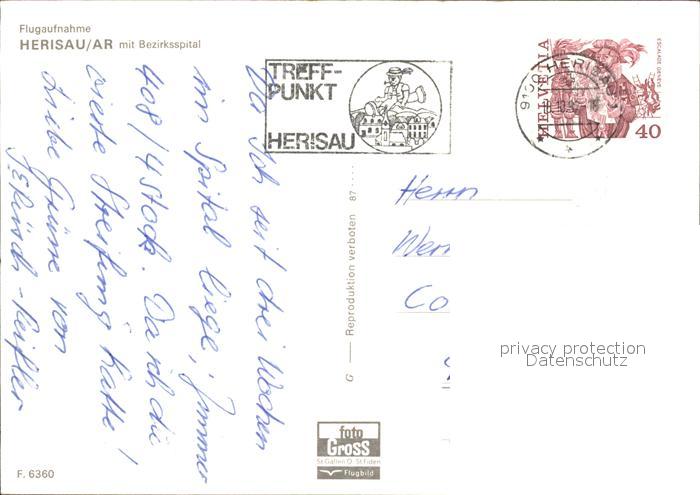 Flugaufnahme
HERISAU/AR mit Bezirksspital
TREFF-
PUNKT
HERISAU
9100 HERISAU 1
HELVETIA
ESCALADE GENÈVE
40
Da ich seit drei Wochen
im Spital liege, Zimmer
408/4 Stock. Da ich die
vierte Streifung hatte!
Liebe Grüsse von
Herrn
Co
G — Reproduktion verboten 87
privacy protection
Datenschutz
foto
Gross
St.Gallen O. St.Fiden
Flugbild
F. 6360